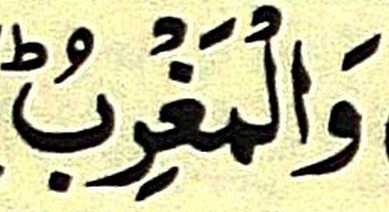 وَالْمَغْرِبُؕ